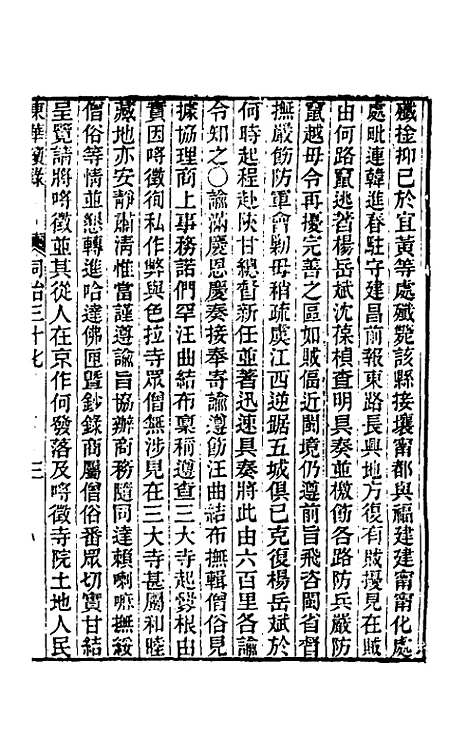 殲捦抑已於宜黃等處殲斃該縣接壤甯都與福建建甯甯化處
處毗連韓進春駐守建昌前報東路長興地方復有賊擾見在賊
由何路竄逃著楊岳斌沈葆楨查明具奏並檄飭各路防兵嚴防
竄越毋令再擾完善之區如賊偪近閩境仍遵前旨飛咨閩省督
撫嚴飭防軍會剿毋稍疏虞江西逆踞五城俱已克復楊岳斌於
何時起程赴陝甘總督新任並著迅速具奏將此由六百里各諭
令知之〇諭滿慶恩慶奏接奉寄諭遵飭汪曲結布撫輯僧俗見
據協理商上事務諾們罕汪曲結布稟稱遵查三大寺起釁根由
實因呤徵徇私作弊與色拉寺眾僧無涉見在三大寺甚屬和睦
藏地亦安靜肅清惟當謹遵諭旨協辦商務隨同達賴喇嘛撫綏
僧俗等情並懇轉進哈達佛匣曁鈔錄商屬僧俗番眾切實甘結
呈覽請將呤徵並其從人在京作何發落及呤徵寺院土地人民
東華續錄 同治三十七 三